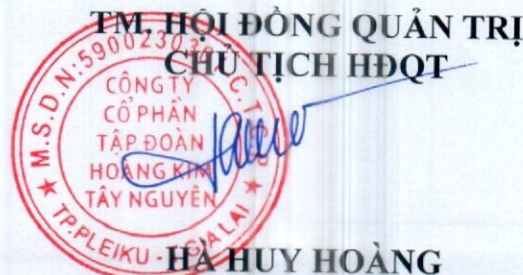 TM. HỘI ĐỒNG QUẢN TRỊ
CHỦ TỊCH HĐQT
M.S.D.N:
C.T.
CÔNG TY
CỔ PHẦN
TẬP ĐOÀN
HOÀNG KIM
TÂY NGUYÊN
TP.PLEIKU - GIA LAI
HÀ HUY HOÀNG